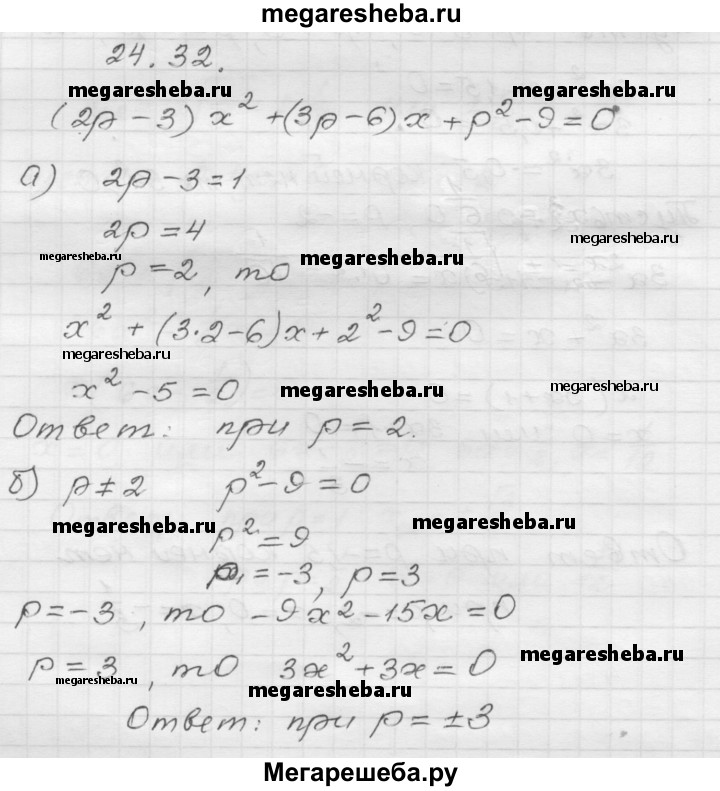 megaresheba.ru
24.32.
megaresheba.ru megaresheba.ru
(2p - 3) x² + (3p - 6) x + p² - 9 = 0
а) 2p - 3 = 1
2p = 4
megaresheba.ru megaresheba.ru megaresheba.ru
p = 2, то
x² + (3·2 - 6)x + 2² - 9 = 0
megaresheba.ru
x² - 5 = 0 megaresheba.ru megaresheba.ru
Ответ: при p = 2.
б) p ≠ 2 p² - 9 = 0
megaresheba.ru megaresheba.ru
p² = 9
p₁ = -3, p = 3
p = -3, то -9x² - 15x = 0
p = 3, то 3x² + 3x = 0 megaresheba.ru
megaresheba.ru megaresheba.ru
Ответ: при p = ±3
Мегарешеба.ру